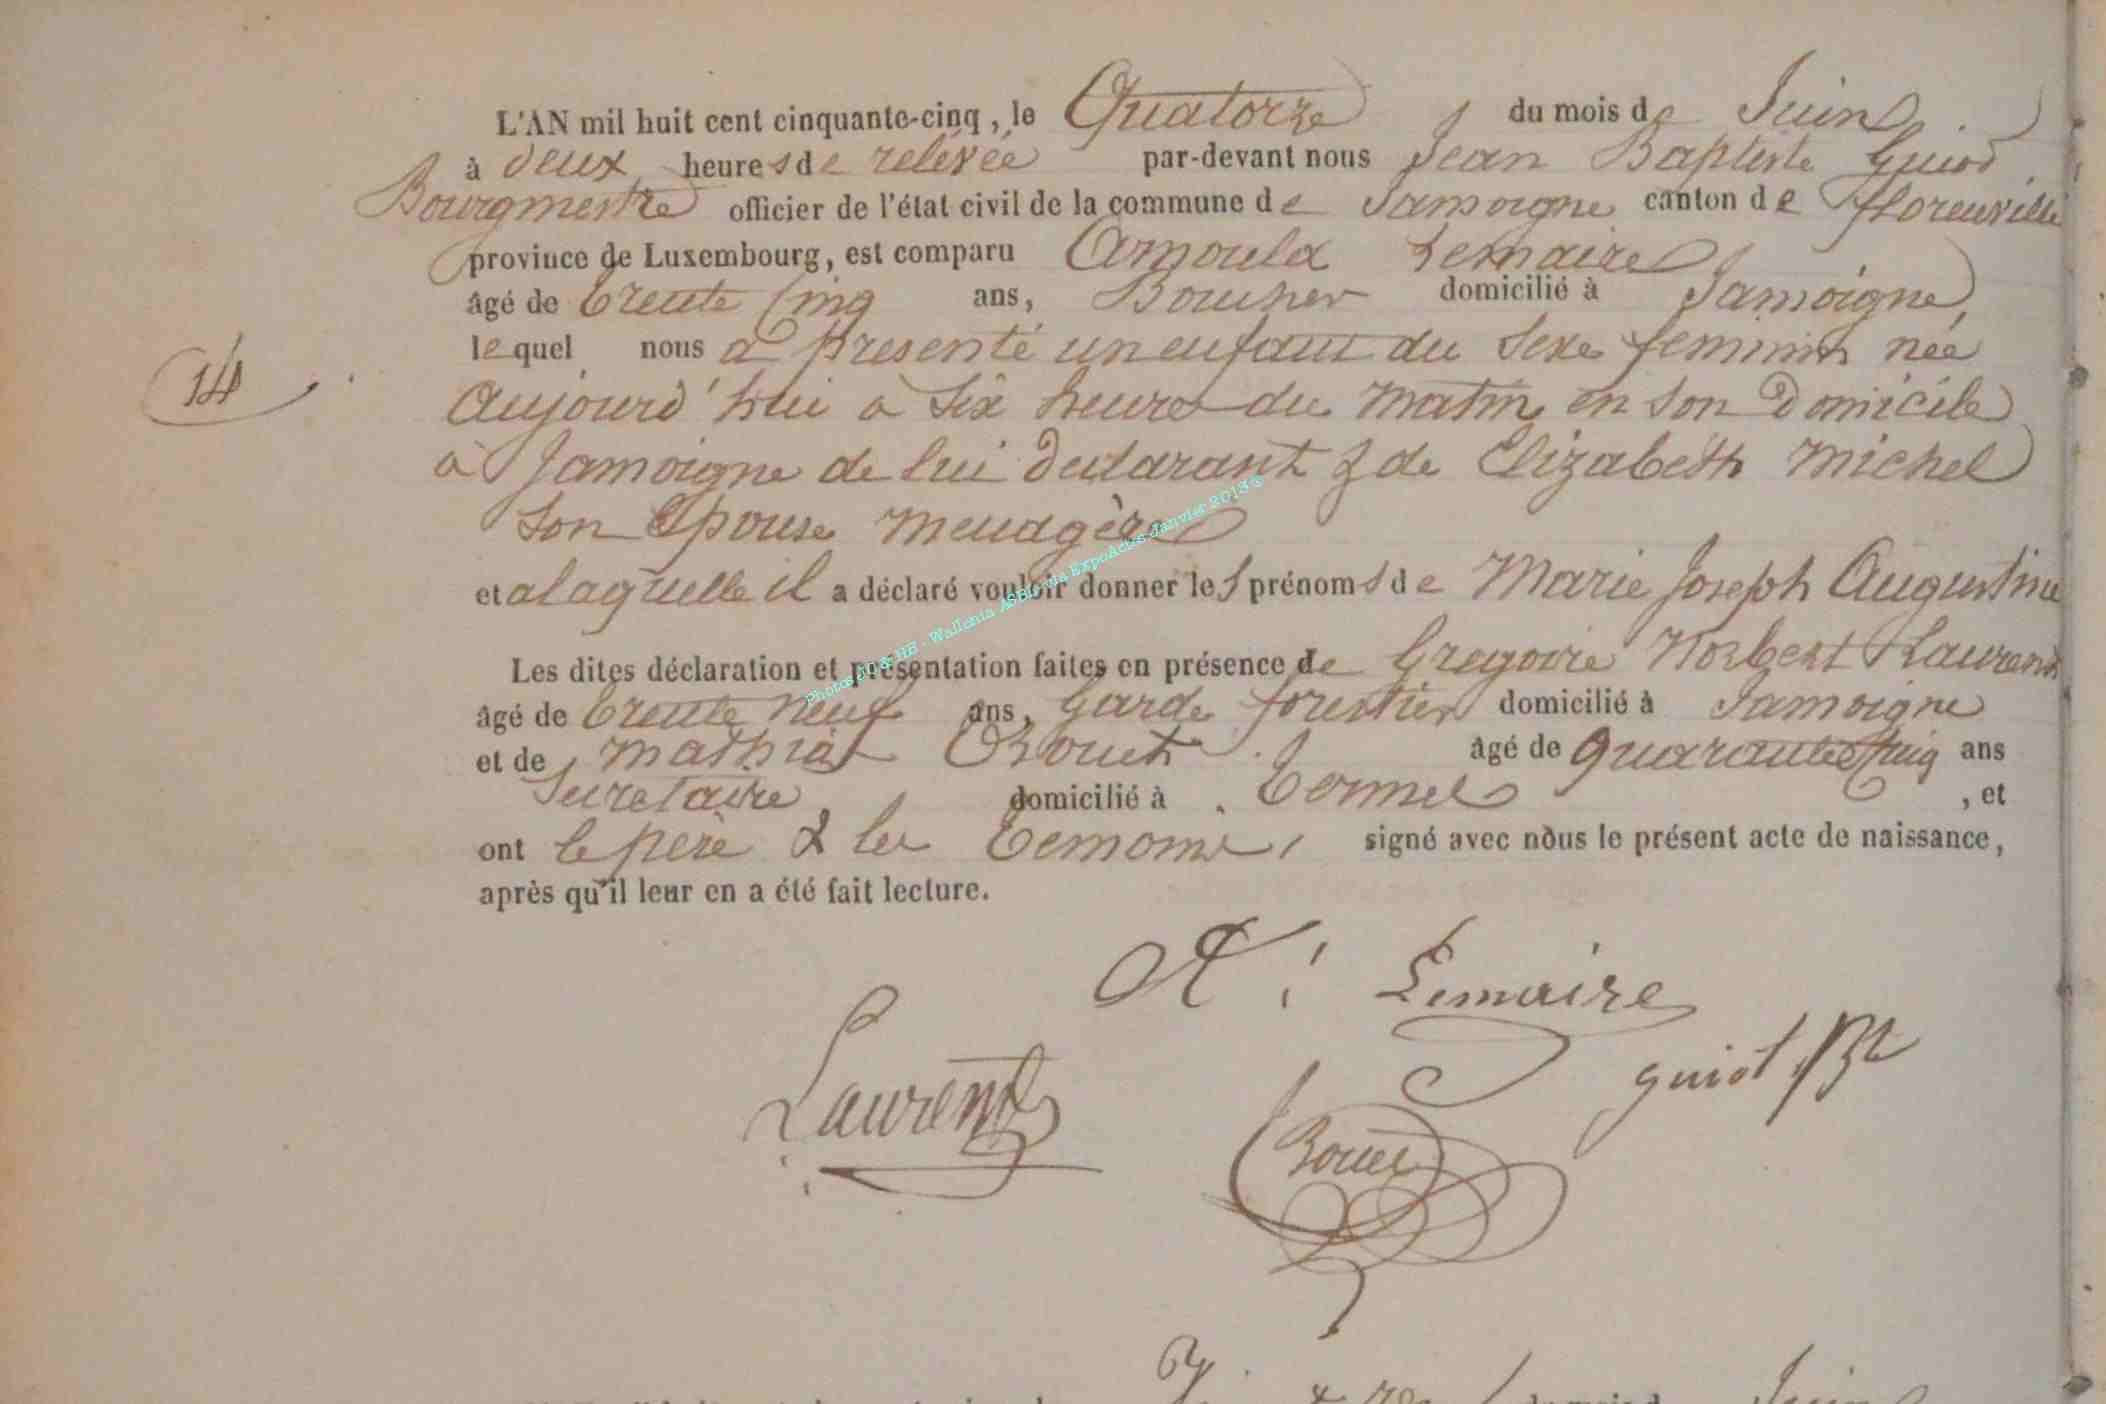 L'AN mil huit cent cinquante-cinq, le Quatorze du mois de Juin
à deux heures de relevée par-devant nous Jean Baptiste Guiot
Bourgmestre officier de l'état civil de la commune de Jamoigne canton de florenville
province de Luxembourg, est comparu Arnould Lemaire
âgé de trente cinq ans, Boucher domicilié à Jamoigne,
lequel nous a présenté un enfant du sexe feminin née
14
aujourd'hui à six heures du matin en son Domicile
à Jamoigne de lui declarant & de Elizabeth Michel
son Epouse menagère
et a laquelle il a déclaré vouloir donner les prénoms de Marie Joseph Augustine
Les dites déclaration et présentation faites en présence de Gregoire Norbert Laurent
âgé de trente neuf ans, Garde forestier domicilié à Jamoigne
et de Mathias âgé de quarante cinq ans
Secretaire domicilié à Termes, et
ont le père & les temoins signé avec nous le présent acte de naissance,
après qu'il leur en a été fait lecture.
A: Lemaire
guiot Bt
Laurent
Photos - Wallonia ASBL via ExpoActes Janvier 2013©
Juin